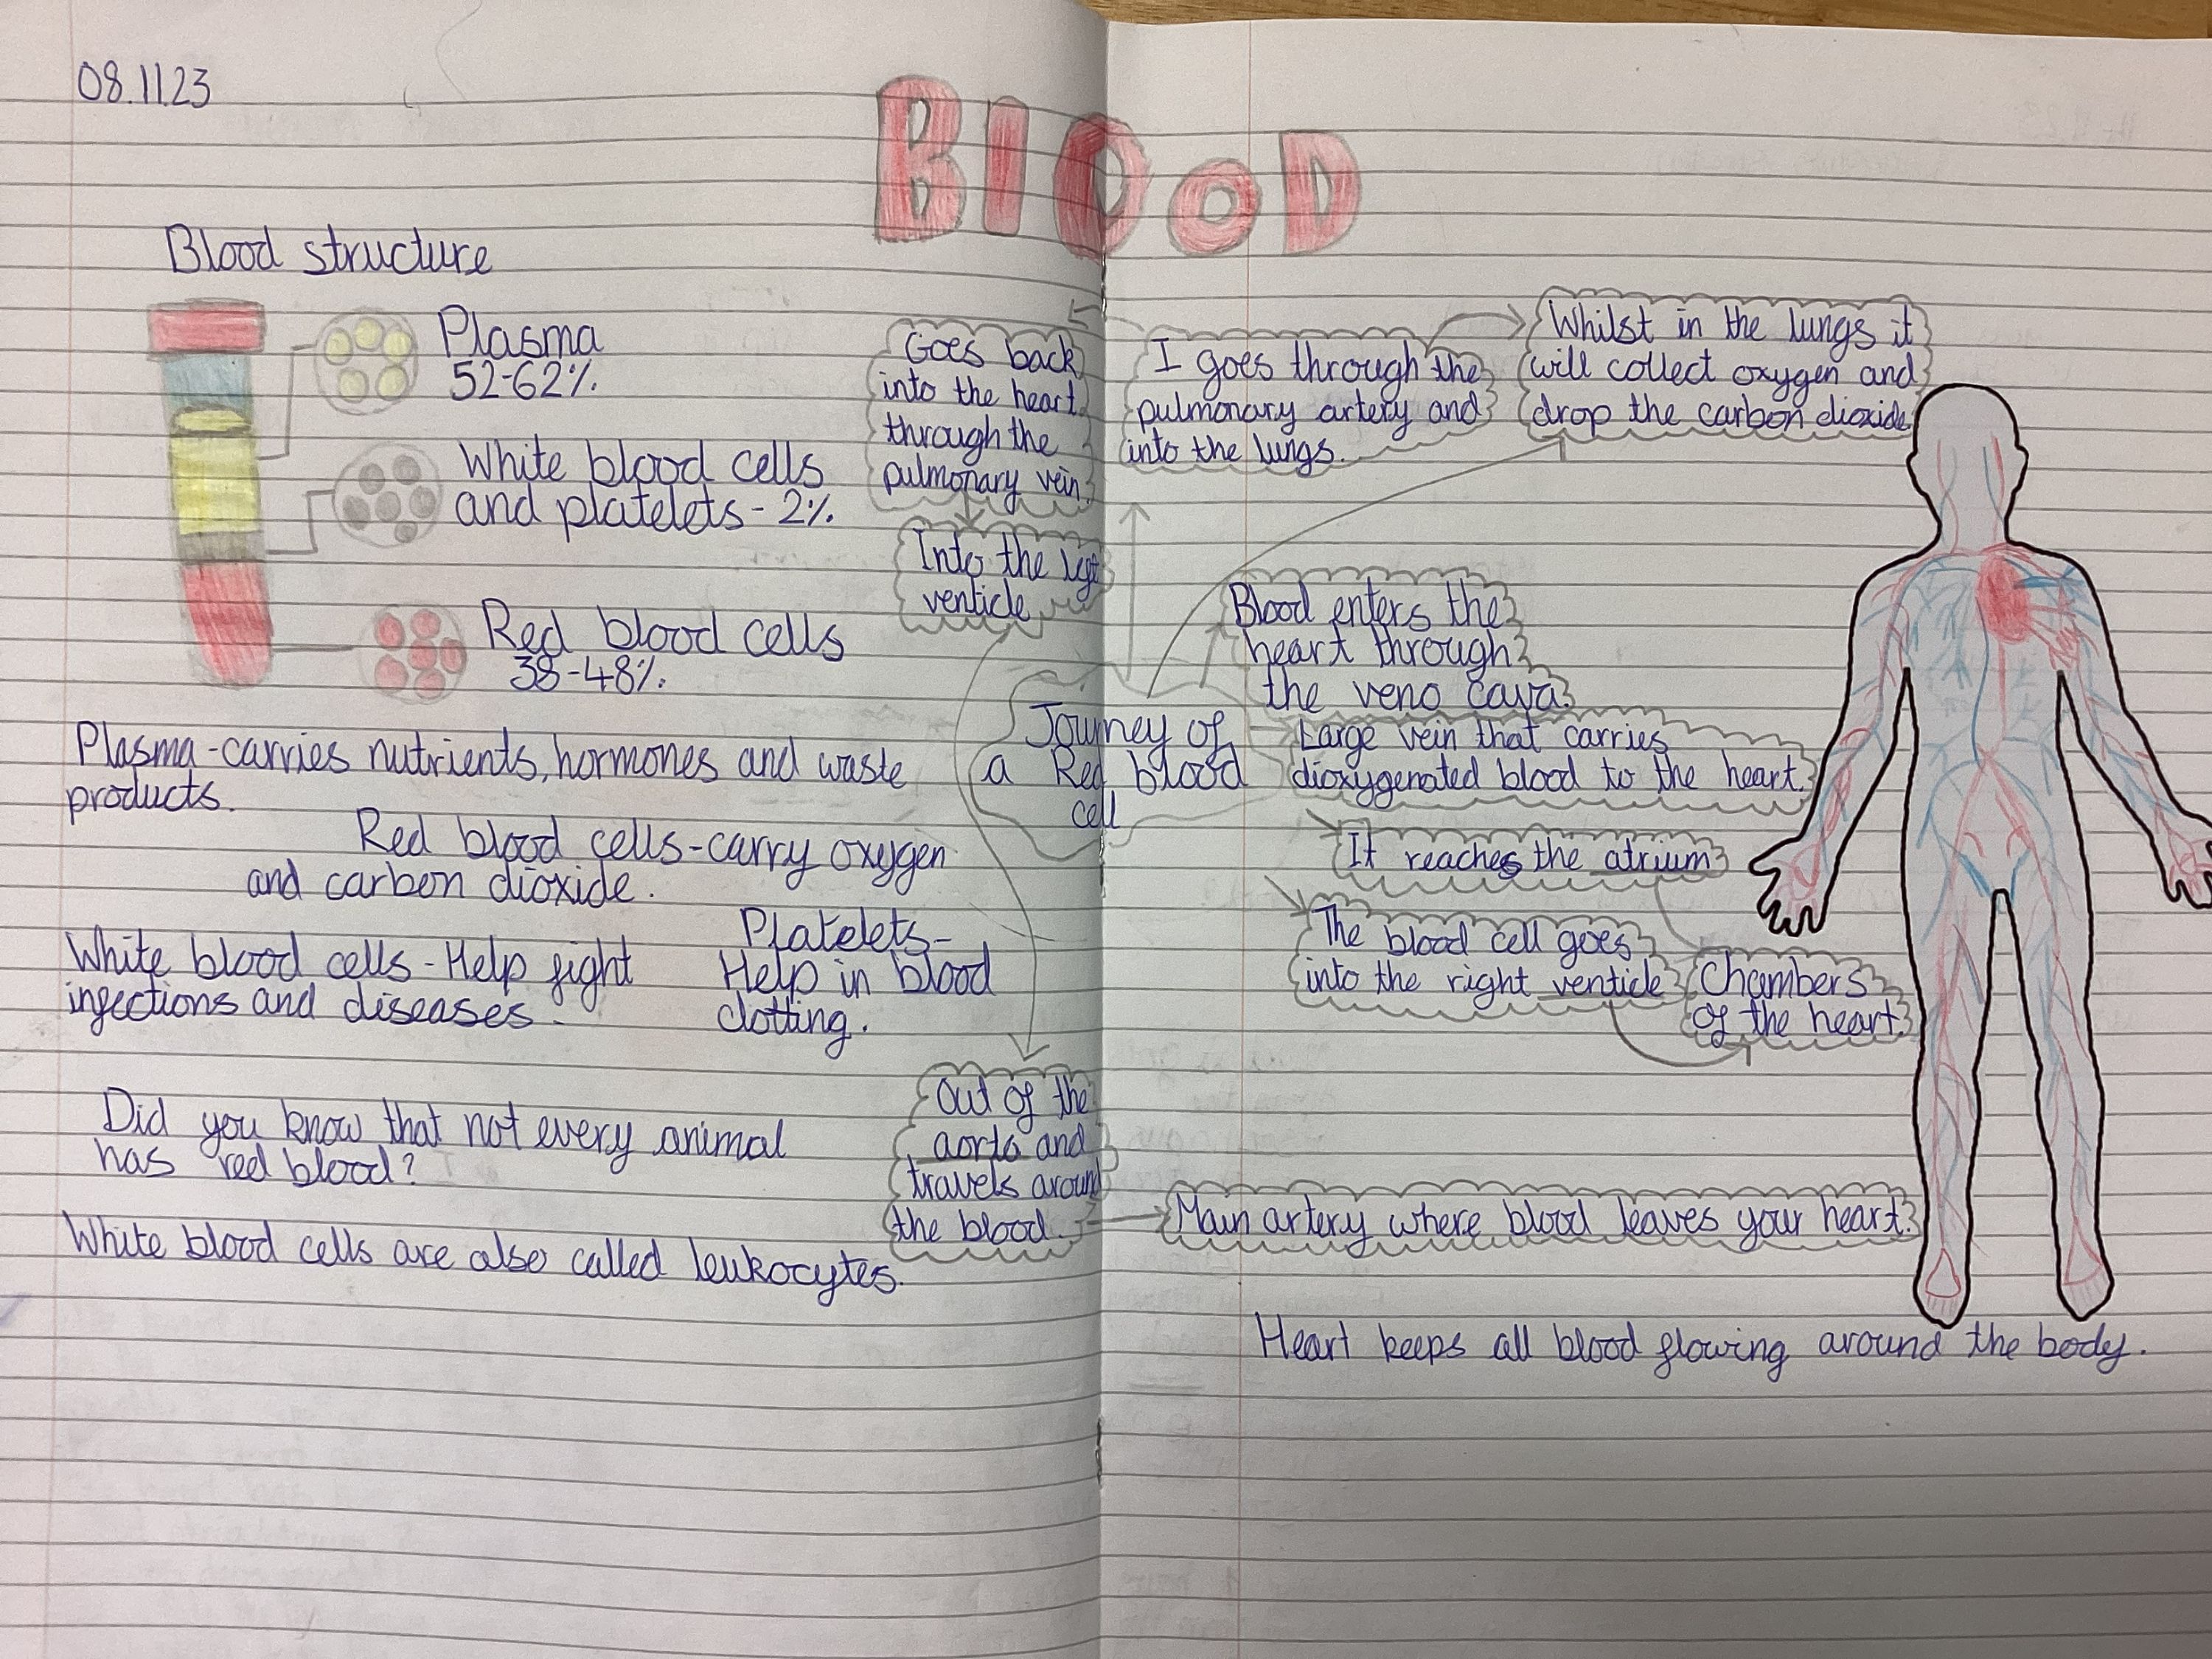 08.11.23
BlOoD
Blood structure
Plasma
52-62%
White blood cells
and platelets - 2%
Red blood cells
38-48%
Plasma - carries nutrients, hormones and waste
products.
Red blood cells - carry oxygen
and carbon dioxide.
White blood cells - Help fight
infections and diseases.
Platelets -
Help in blood
clotting.
Did you know that not every animal
has red blood?
White blood cells are also called leukocytes.
Goes back
into the heart
through the
pulmonary vein.
Into the left
venticle
Journey of
a Red blood
cell
Out of the
aorta and
travels around
the blood.
I goes through the
pulmonary artery and
into the lungs.
Whilst in the lungs it
will collect oxygen and
drop the carbon dioxide
Blood enters the
heart through
the veno cava.
Large vein that carries
dioxygenated blood to the heart.
It reaches the atrium
The blood cell goes
into the right venticle
Chambers
of the heart.
Main artery where blood leaves your heart.
Heart keeps all blood flowing around the body.